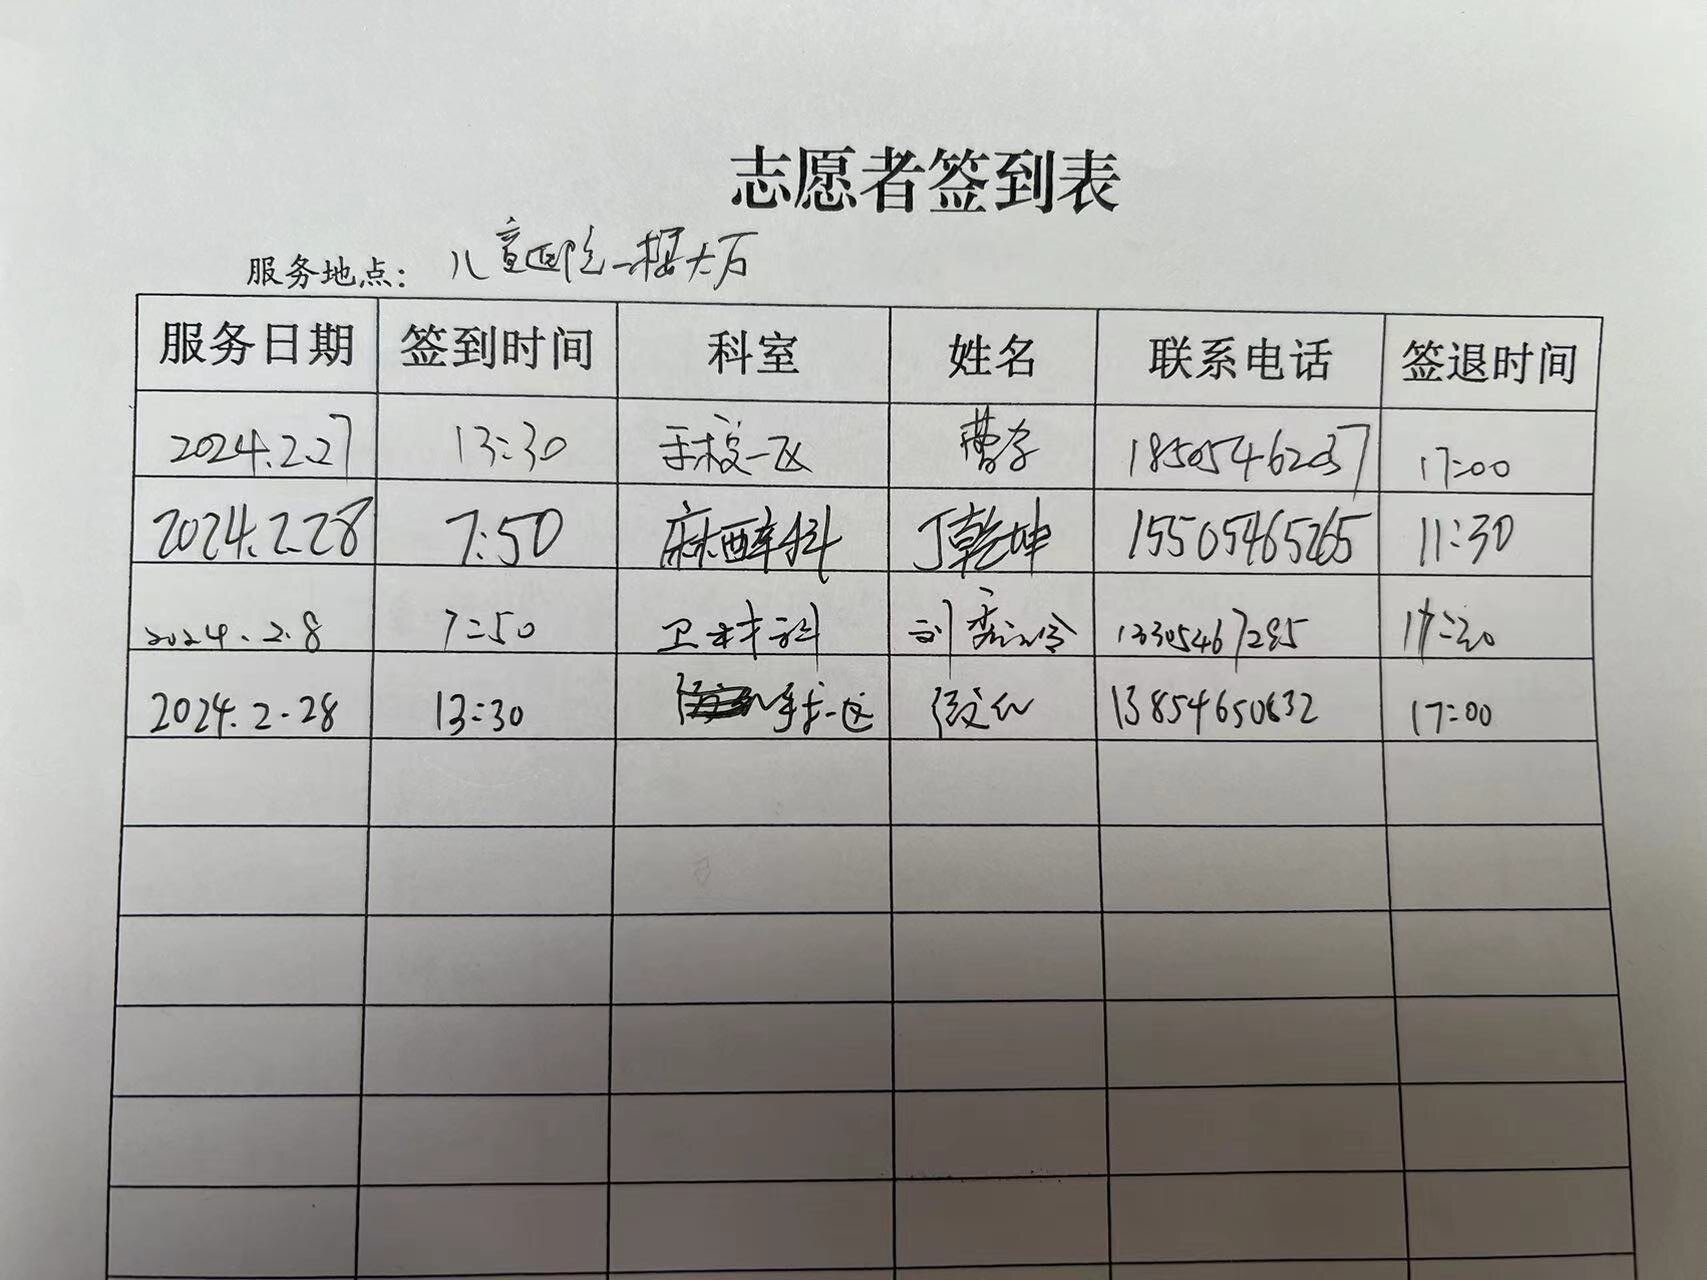 志愿者签到表
服务地点: 儿童医院一楼大厅
服务日期 签到时间 科室 姓名 联系电话 签退时间
2024.2.27 13:30 手术一区 曹 18505462037 17:00
2024.2.28 7:50 麻醉科 丁乾坤 15505465265 11:30
2024.2.8 7:50 卫材科 刘 13305467285 11:30
2024.2.28 13:30 手术一区 13854650632 17:00